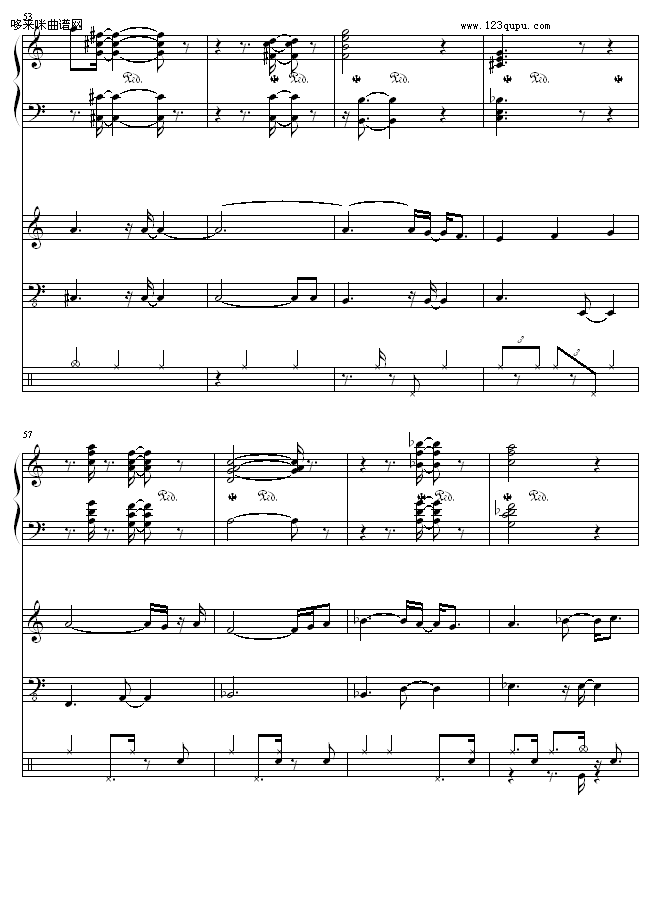 53
哆来咪曲谱网
www.123qupu.com
Ped.
Ped.
Ped.
3
3
57
Ped.
Ped.
Ped.
Ped.